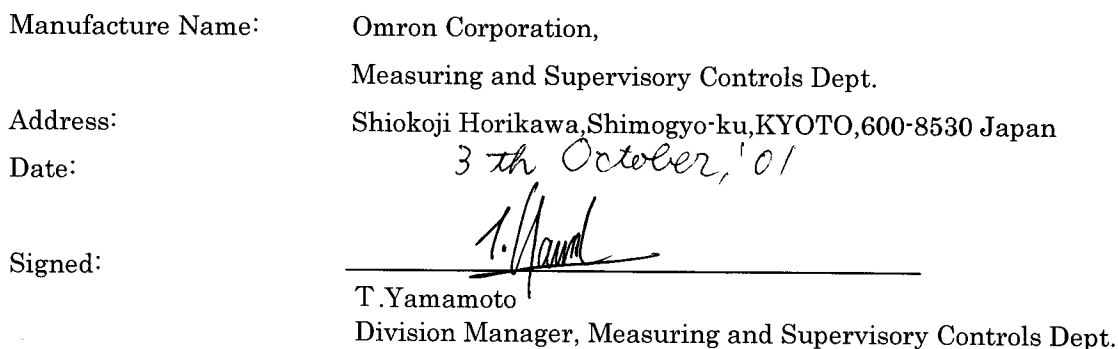 Manufacture Name: Omron Corporation,
Measuring and Supervisory Controls Dept.
Address: Shiokoji Horikawa,Shimogyo-ku,KYOTO,600-8530 Japan
Date: 3 th October, '01
Signed:
T.Yamamoto
Division Manager, Measuring and Supervisory Controls Dept.